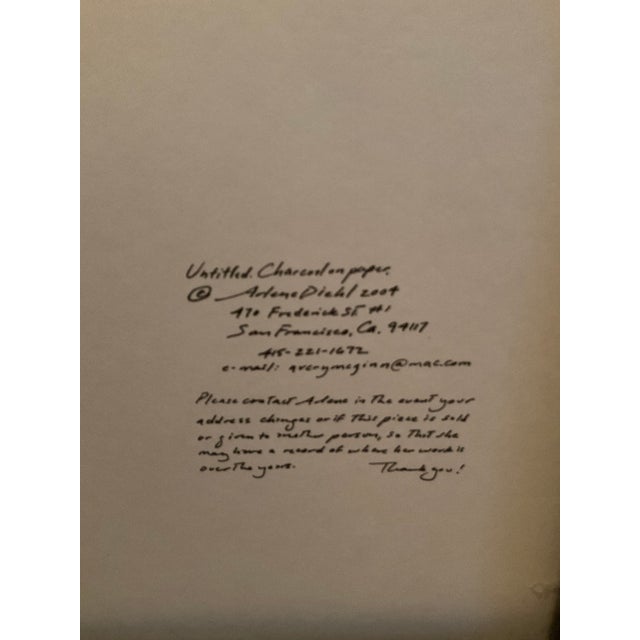 Untitled. Charcoal on paper.
© Arlene Diehl 2004
470 Frederick St. #1
San Francisco, Ca. 94117
415-221-1672
e-mail: averymcginn@mac.com
Please contact Arlene in the event your
address changes or if this piece is sold
or given to another person, so that she
may have a record of where her work is
over the years. Thank you!